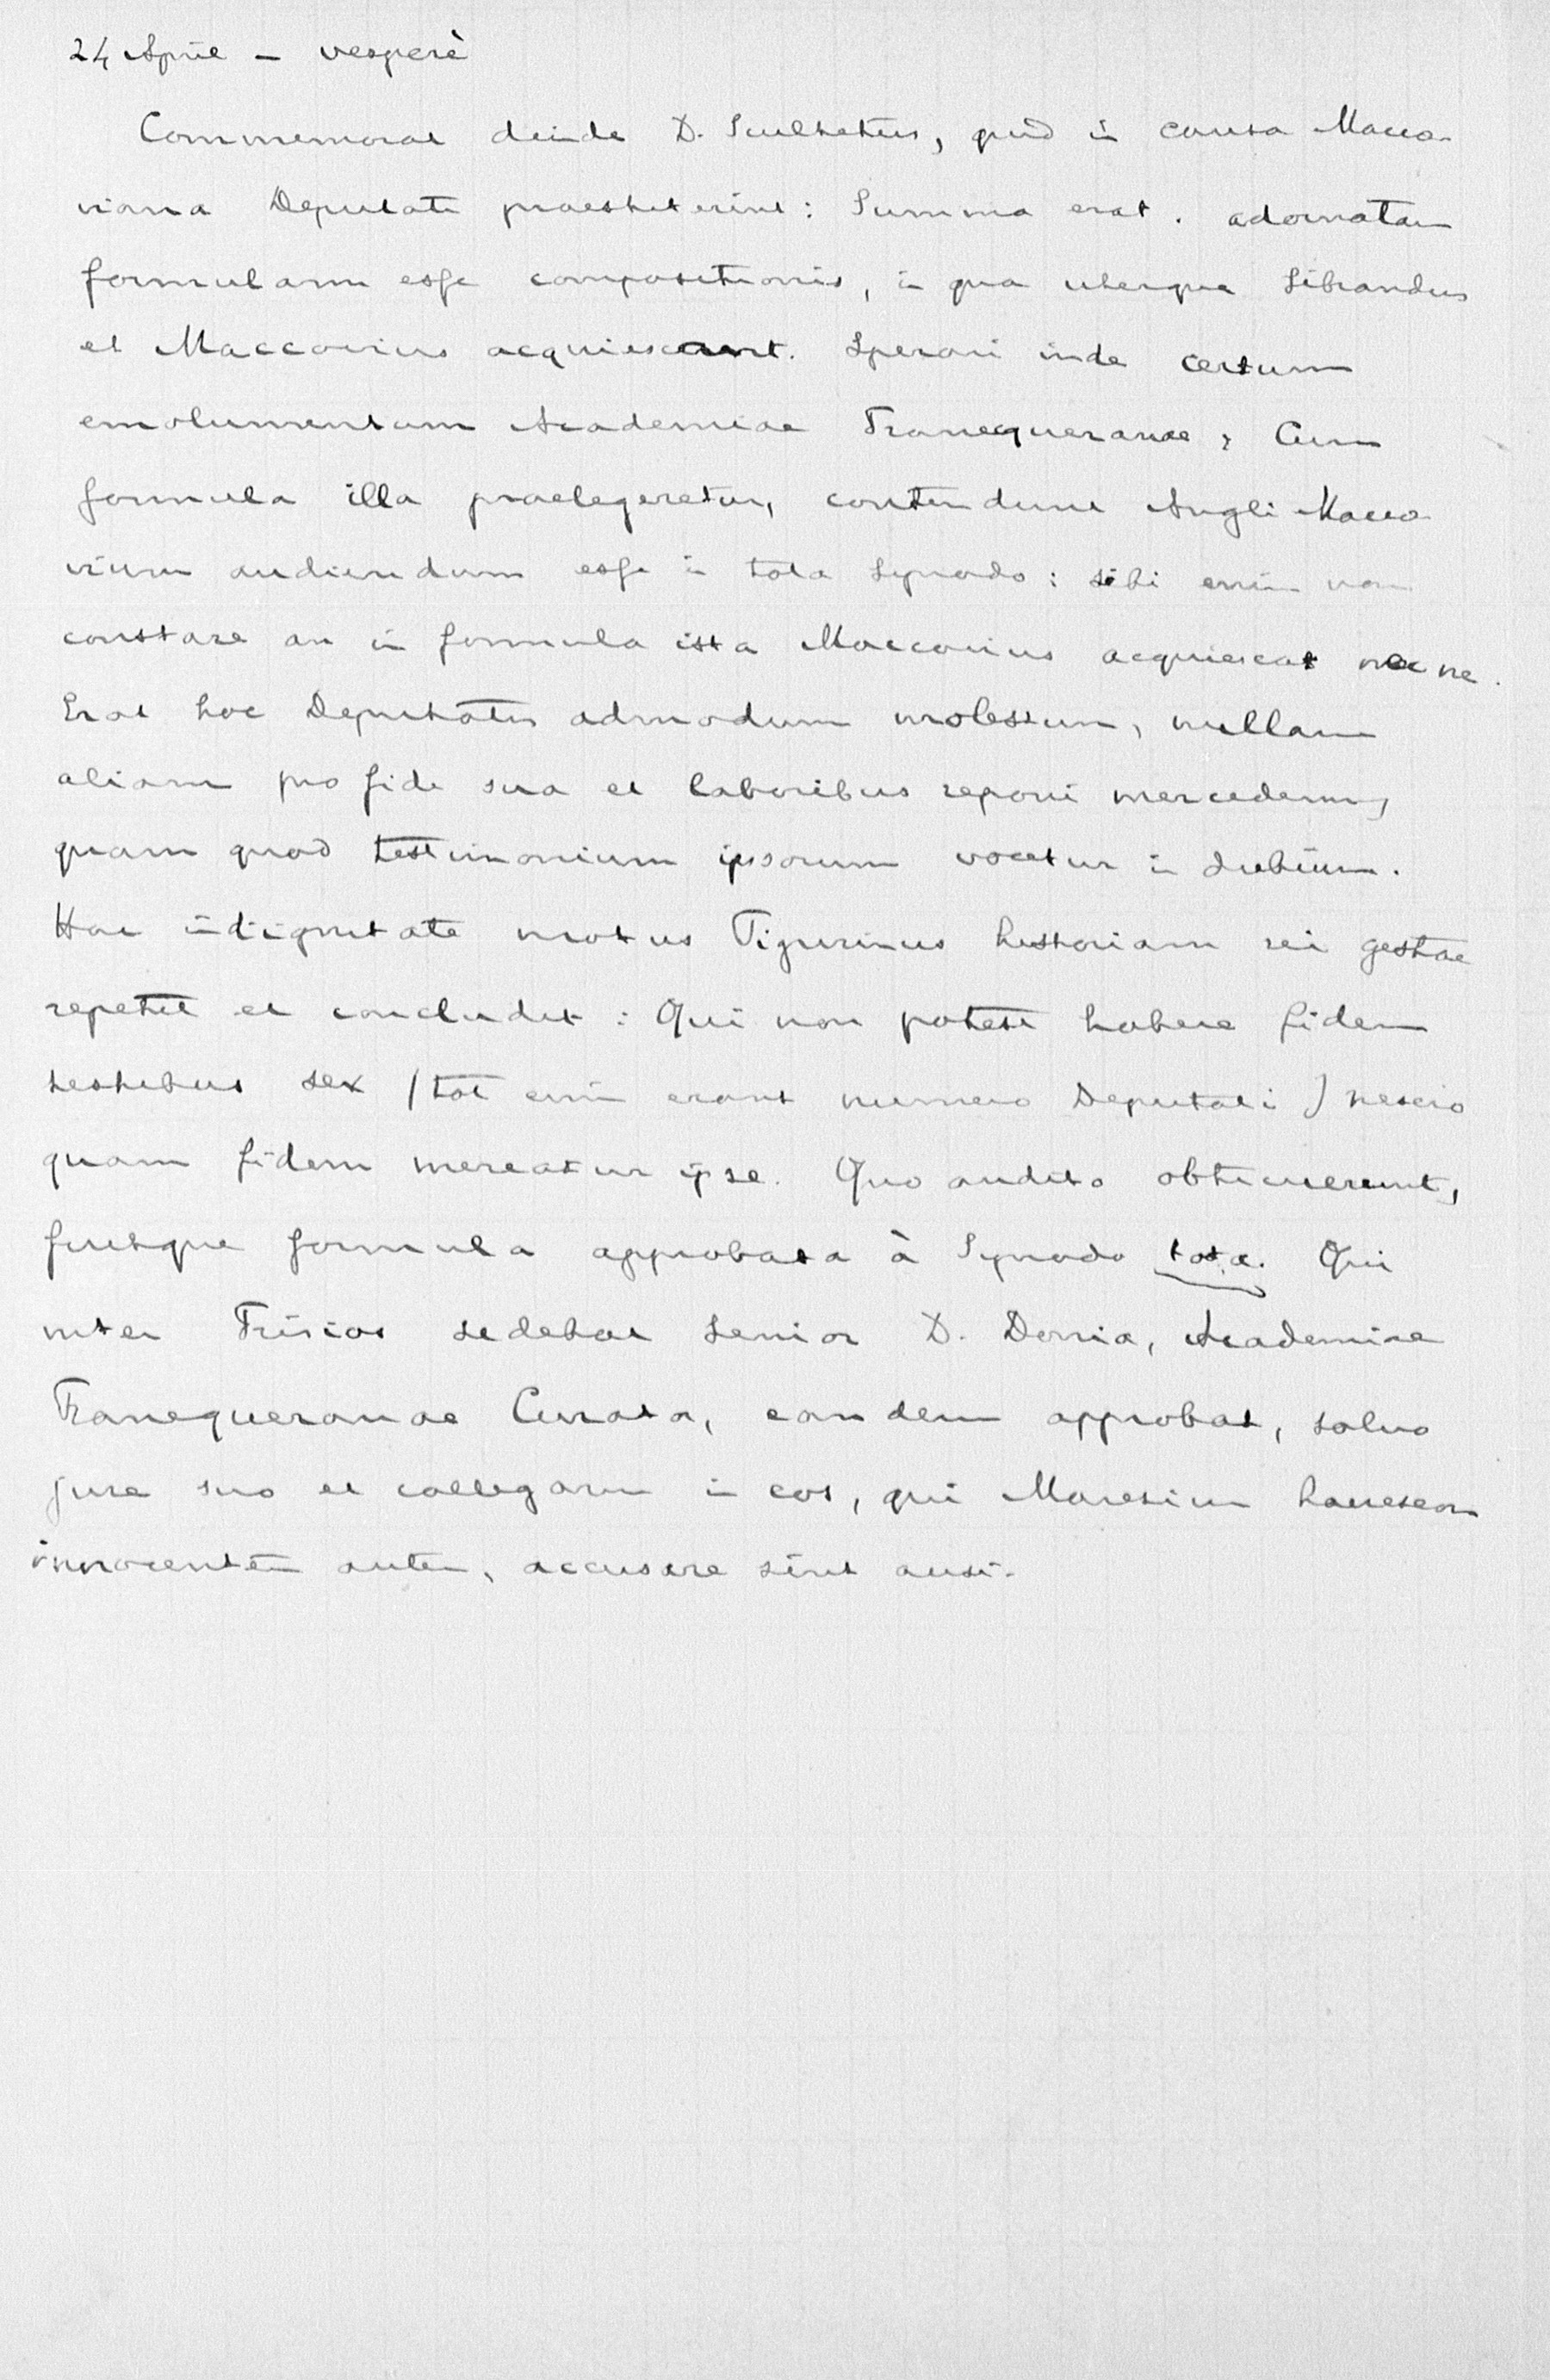 24 April – vesperè
Commemorat deinde D. Scultetus, quid in causa Macco-
viana Deputati praestiterint: Summa erat. adornatam
formulam esse compositionis, in qua uterque Sibrandus
et Maccovius acquiescant. Sperari inde certum
emolumentum Academiae Franequeranae; Cum
formula illa praelegeretur, contendunt Angli Macco-
vium audiendum esse in tota Synodo: sibi enim non
constare an in formula ista Maccovius acquiescat nec ne.
Erat hoc Deputatis admodum molestum, nullam
aliam pro fide sua et laboribus reponi mercedem,
quam quod testimonium ipsorum vocetur in dubium.
Hac indignitate motus Tigurinus historiam rei gestae
repetit et concludit: Qui non potest habere fidem
testibus sex (tot enim erant numero Deputati) nescio
quam fidem mereatur ipse. Quo audito obticuerunt,
fuitque formula approbata à Synodo tota. Qui
inter Frisios sedebat Senior D. Donia, Academiae
Franequeranae Curator, eandem approbat, salvo
jure suo et collegarum in eos, qui
innocentem autem, accusare sint ausi.